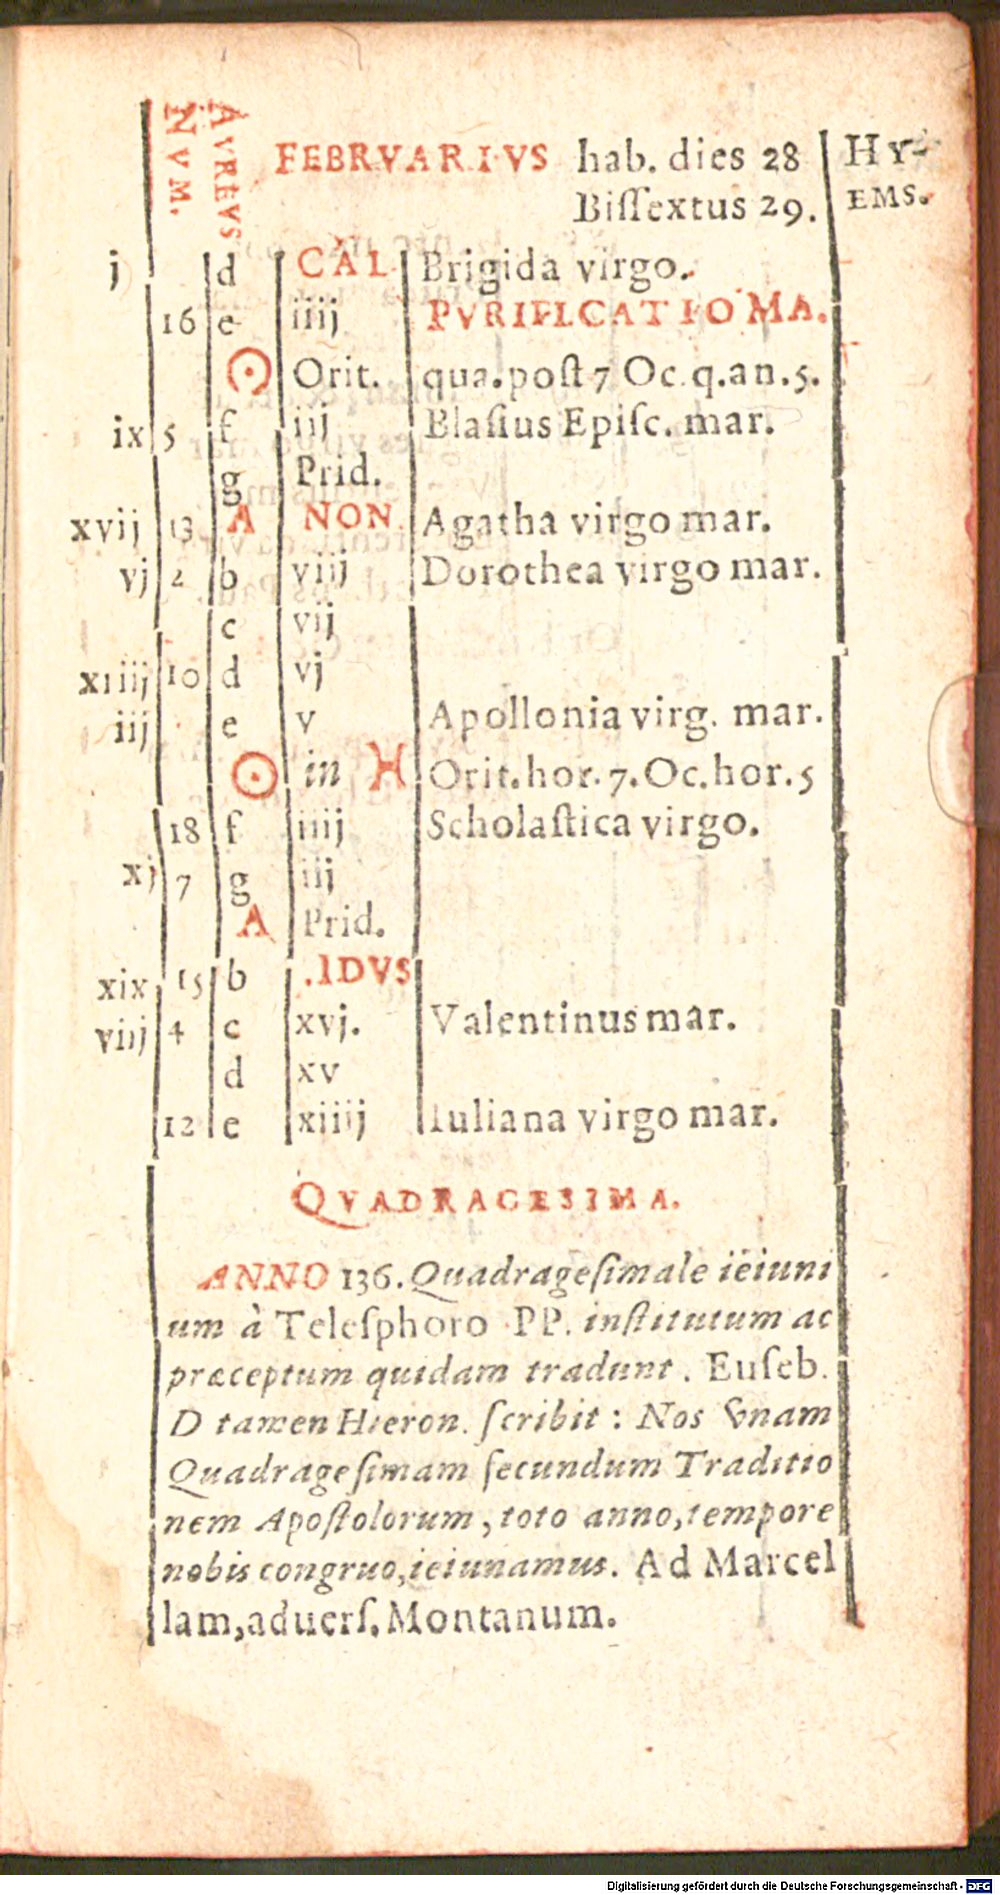 AVREVS
NVM.
FEBRVARIVS hab. dies 28
Bissextus 29.
HY-
EMS.
j d CAL. Brigida virgo.
16 e iiij PVRIFICATIO MA.
☉ Orit. qua.post 7 Oc.q.an.5.
ix 5 f iij Blaſius Epiſc. mar.
g Prid.
xvij 13 A NON. Agatha virgo mar.
vj 2 b viij Dorothea virgo mar.
c vij
xiiij 10 d vj
iij e v Apollonia virg. mar.
☉ in ♓ Orit.hor.7.Oc.hor.5
18 f iiij Scholaſtica virgo.
xj 7 g iij
A Prid.
xix 15 b .IDVS
viij 4 c xvj. Valentinus mar.
d xv
12 e xiiij Iuliana virgo mar.
QVADRAGESIMA.
ANNO 136. Quadrageſimale ieiuni
um à Teleſphoro PP. inſtitutum ac
præceptum quidam tradunt. Euſeb.
D tamen Hieron. ſcribit: Nos vnam
Quadrageſimam ſecundum Traditio
nem Apoſtolorum, toto anno, tempore
nobis congruo, ieiunamus. Ad Marcel
lam, aduerſ. Montanum.
Digitalisierung gefördert durch die Deutsche Forschungsgemeinschaft - DFG